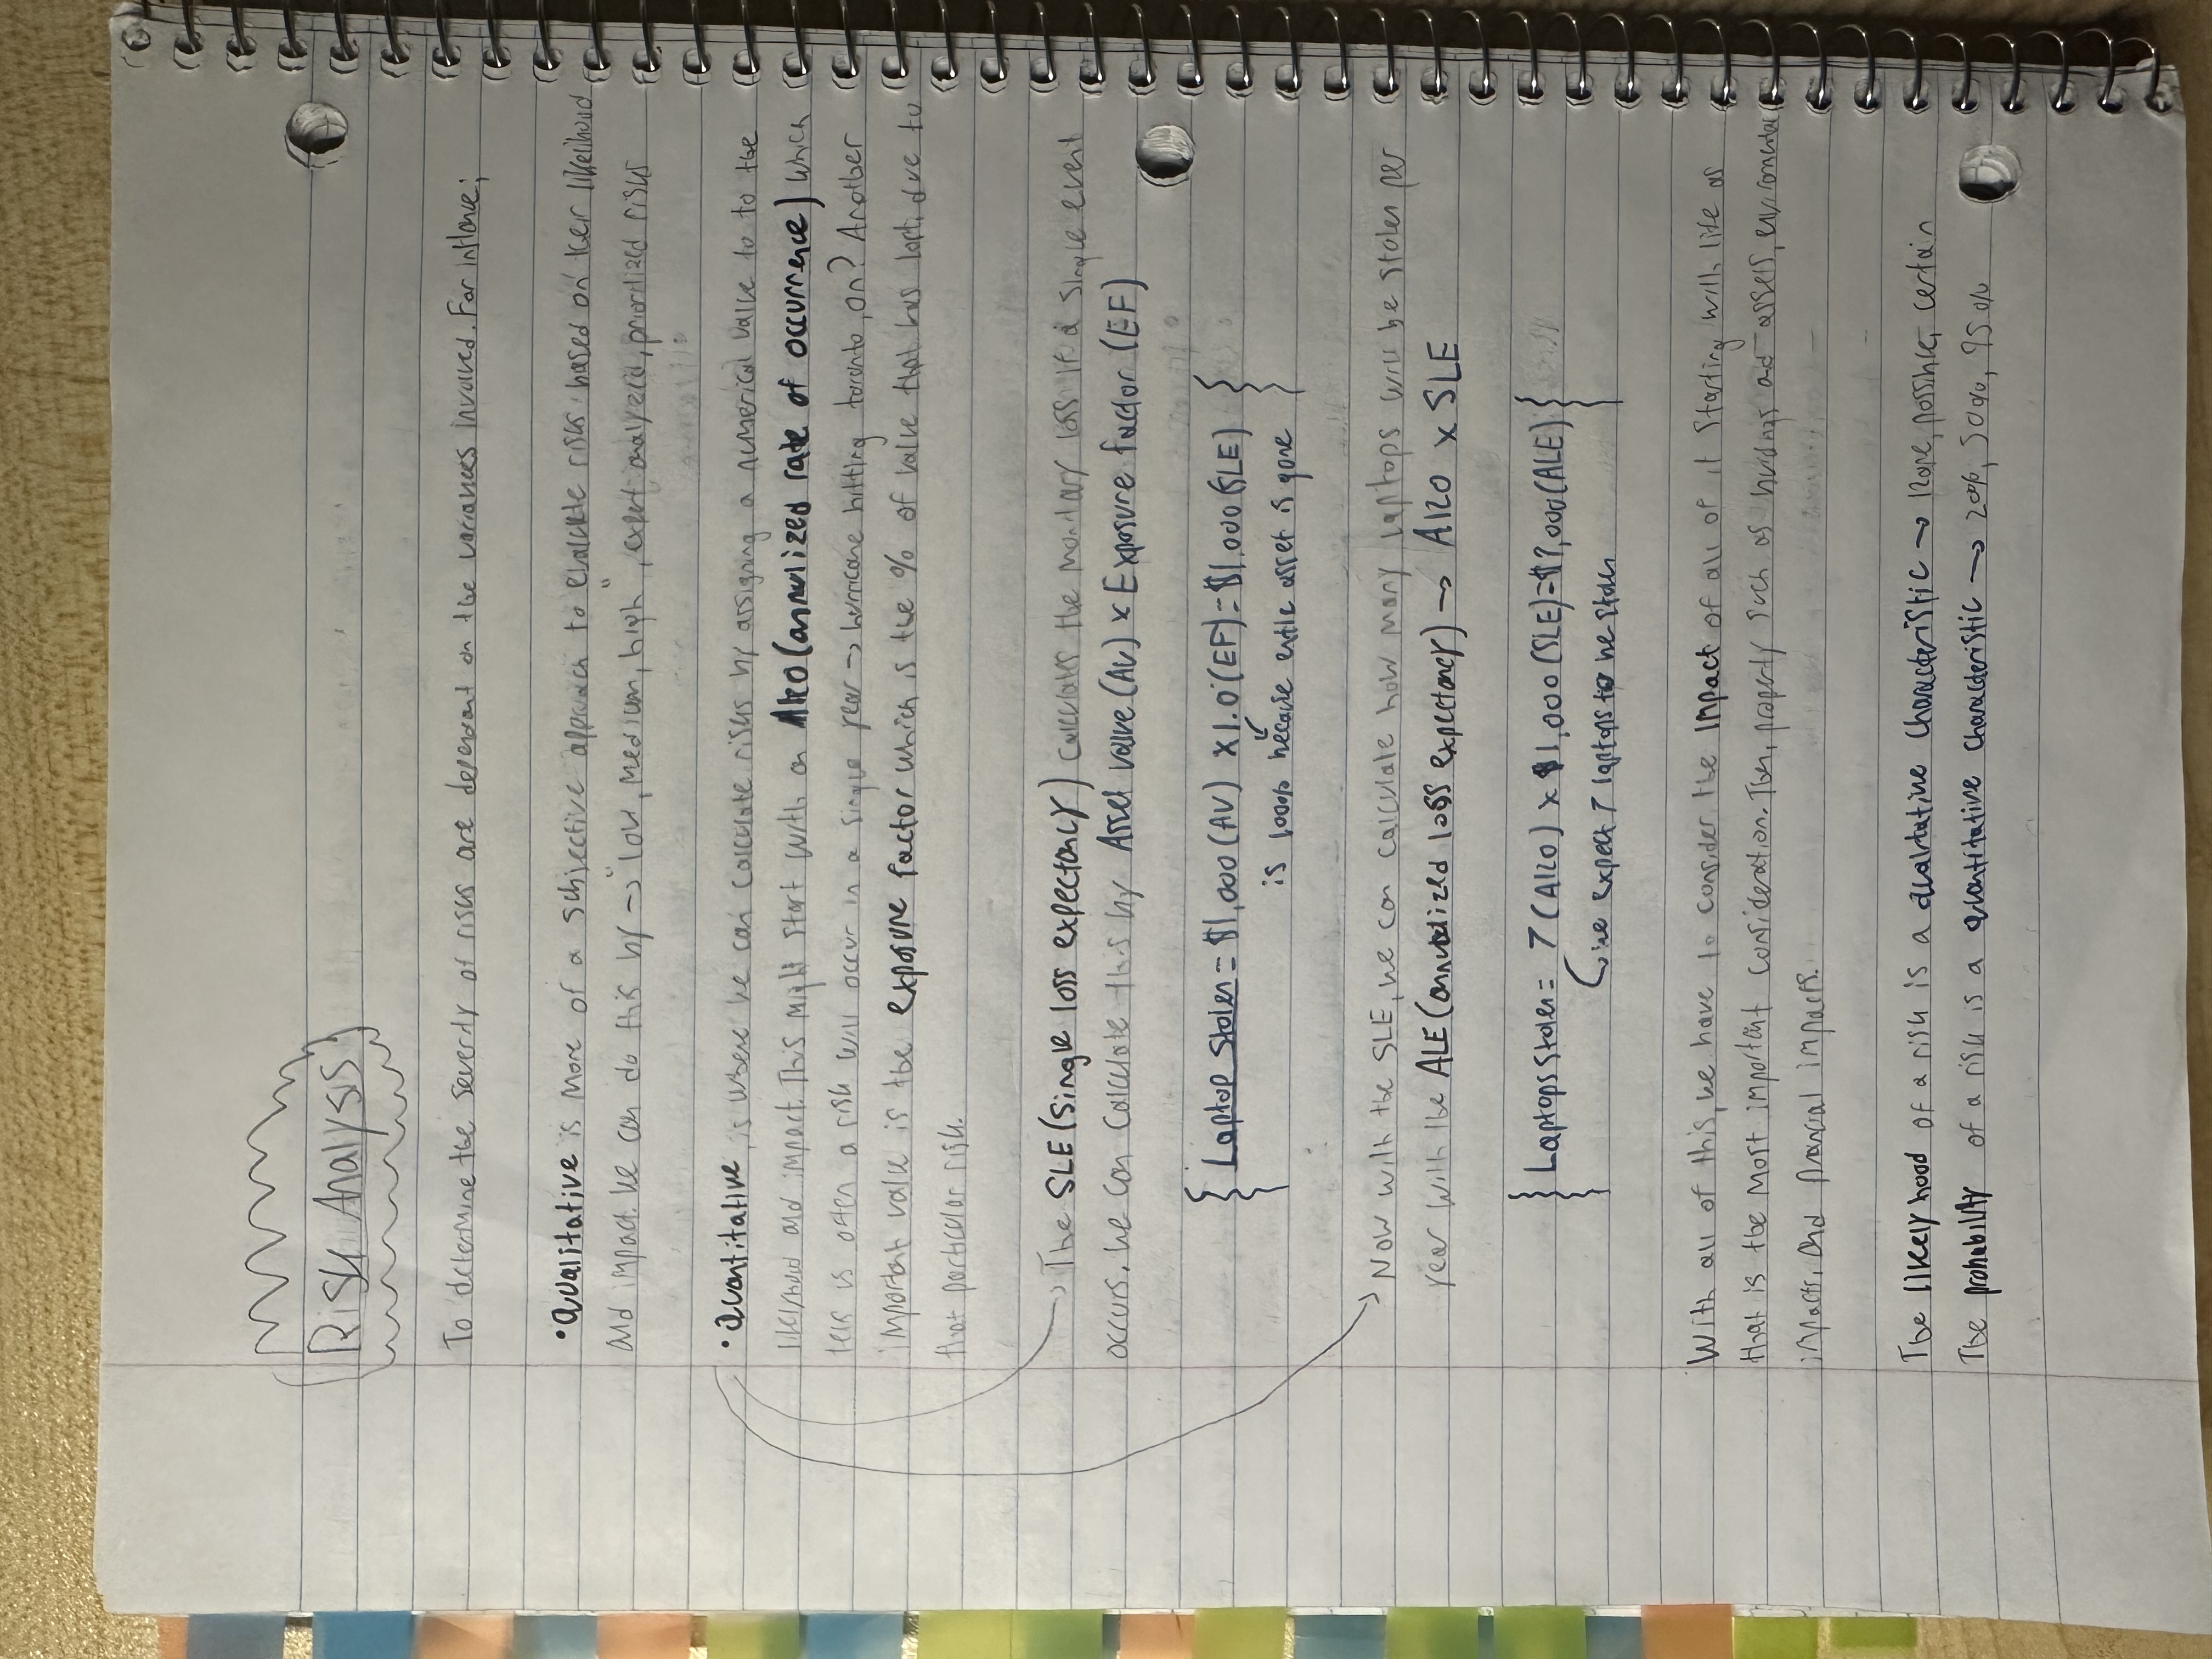 Risk Analysis
To determine the severity of risks are dependant on the variances involved. For instance;
• Qualitative is more of a subjective approach to evaluate risks based on their likelihood
and impact. We can do this by → "low, medium, high", expert analyzed, prioritized risks
• Quantitative is where we can calculate risks by assigning a numerical value to to the
likelyhood and impact. This might start with an ARO (annulized rate of occurrence) which
tells us often a risk will occur in a single year → hurricane hitting toronto, on? Another
important value is the exposure factor which is the % of value that was lost due to
that particular risk.
→ The SLE (Single loss expectancy) calculates the monitary loss if a single event
occurs. We can calculate this by Asset value (AV) x Exposure factor (EF)
{ Laptop stolen = $1,000 (AV) x 1.0 (EF) = $1,000 (SLE) }
is 100% because entire asset is gone
→ Now with the SLE, we can calculate how many laptops will be stolen per
year with the ALE (annualized loss expectancy) → ARO x SLE
{ Laptops stolen = 7 (ARO) x $1,000 (SLE) = $7,000 (ALE) }
we expect 7 laptops to be stolen
With all of this, we have to consider the impact of all of it starting with life as
that is the most important consideration. Then, property such as buildings and assets, enviromental
impacts, and financial impacts.
The likelyhood of a risk is a qualitative characteristic → Rare, possible, certain
The probability of a risk is a quantitative characteristic → 20%, 50%, 95%